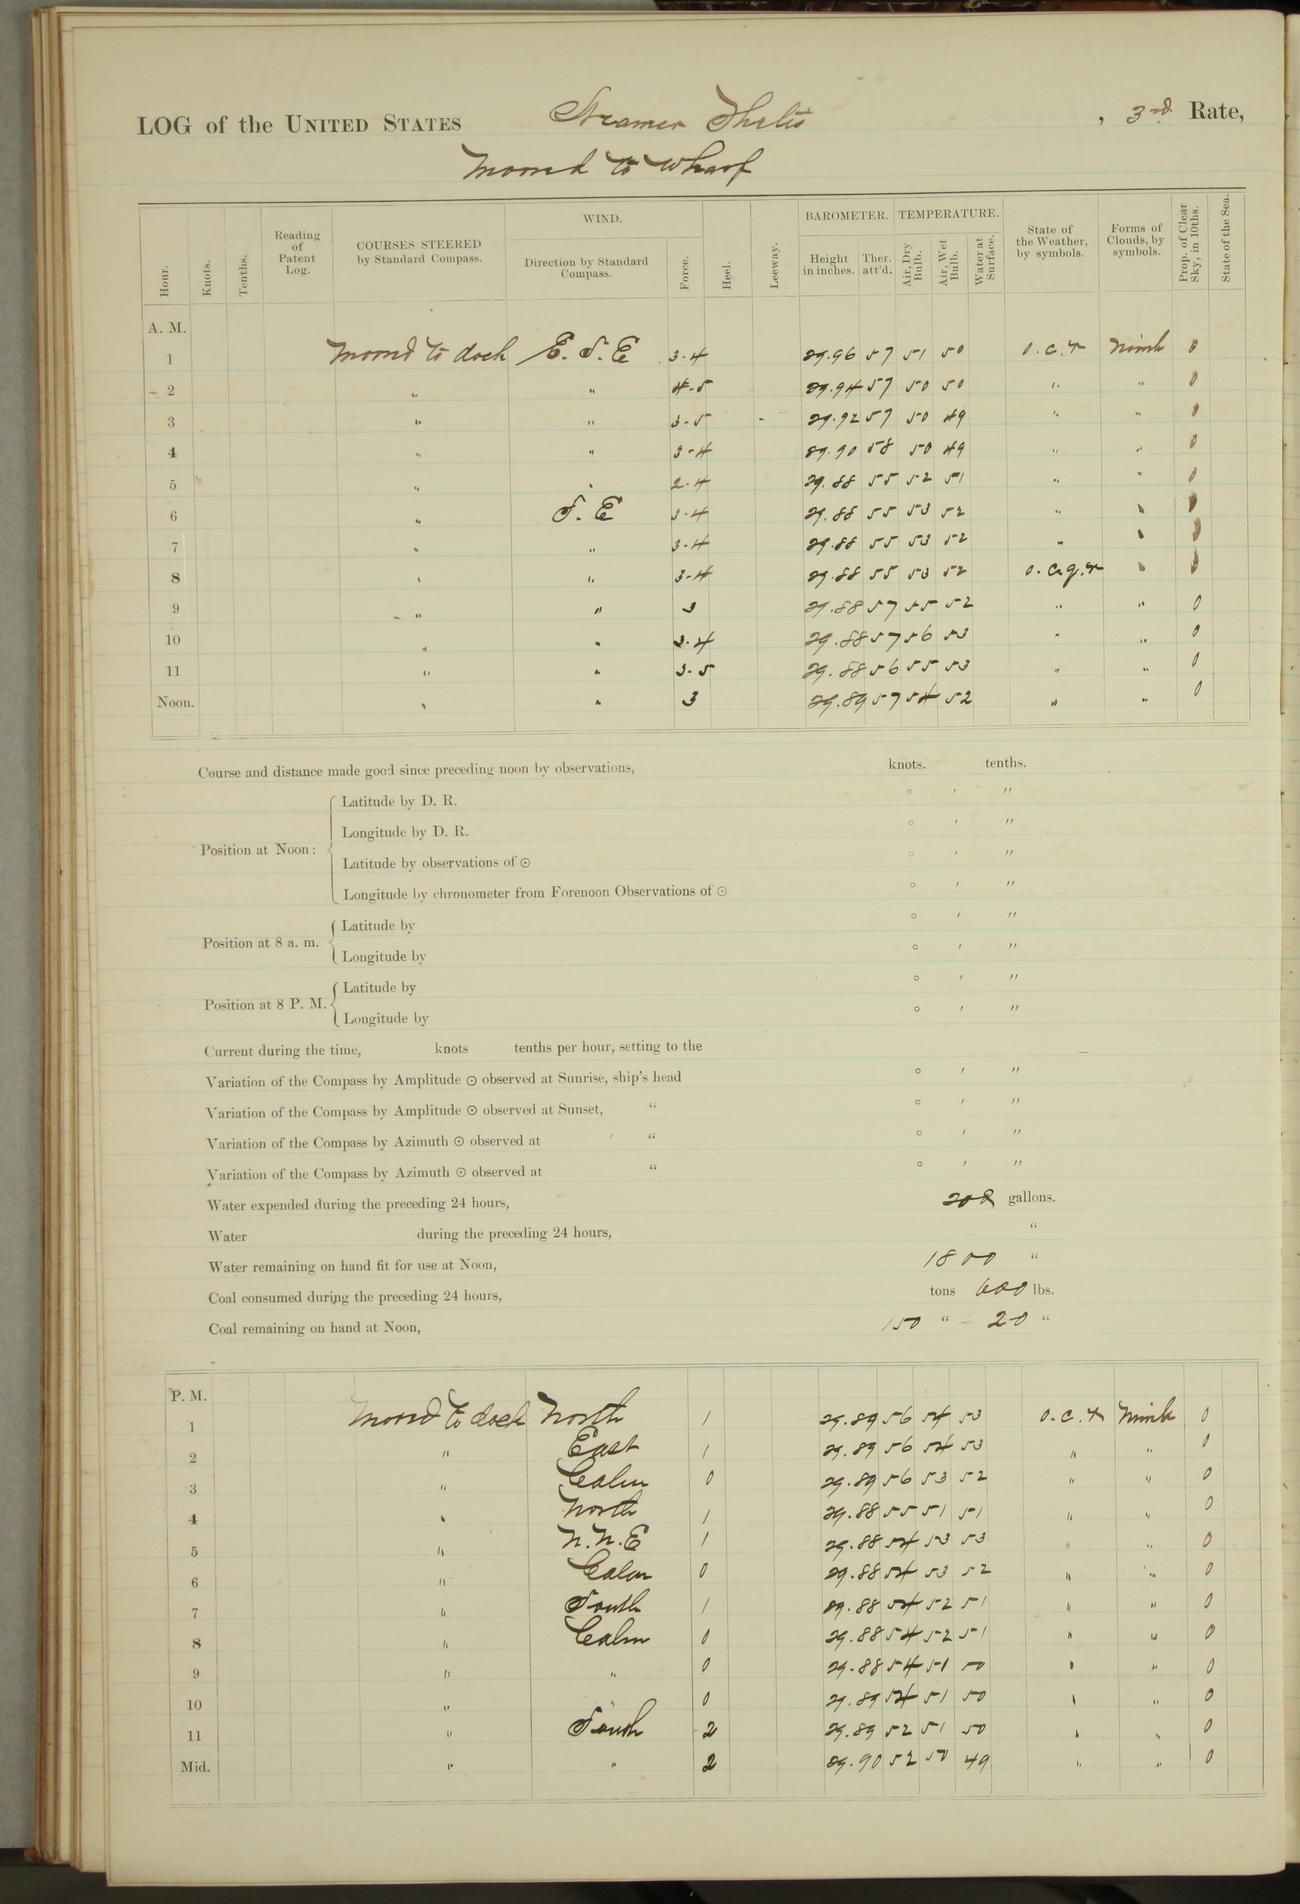 LOG of the UNITED STATES Steamer Thetis, 3rd Rate,
Moored to Wharf
Hour. Knots. Tenths. Reading of Patent Log. COURSES STEERED by Standard Compass. WIND. Direction by Standard Compass. Force. Heel. Leeway. BAROMETER. Height in inches. Ther. att'd. TEMPERATURE. Air, Dry Bulb. Air, Wet Bulb. Water at Surface. State of the Weather, by symbols. Forms of Clouds, by symbols. Prop. of Clear Sky, in 10ths. State of the Sea.
A. M.
1 Moored to dock E. S. E 3-4 29.96 57 51 50 o.c.r Nimb 0
2 " " 4-5 29.94 57 50 50 " " 0
3 " " 3-5 29.92 57 50 49 " " 0
4 " " 3-4 29.90 58 50 49 " " 0
5 " " 2-4 29.88 55 52 51 " " 0
6 " S. E 3-4 29.88 55 53 52 " " 0
7 " " 3-4 29.88 55 53 52 " " 0
8 " " 3-4 29.88 55 53 52 o.c.q.r " 0
9 " " 3 29.88 57 55 52 " " 0
10 " " 3-4 29.88 57 56 53 " " 0
11 " " 3-5 29.88 56 55 53 " " 0
Noon. " " 3 29.89 57 54 52 " " 0
Course and distance made good since preceding noon by observations, knots. tenths.
Position at Noon: Latitude by D. R. ° ' "
Longitude by D. R. ° ' "
Latitude by observations of ⊙ ° ' "
Longitude by chronometer from Forenoon Observations of ⊙ ° ' "
Position at 8 a. m. Latitude by ° ' "
Longitude by ° ' "
Position at 8 P. M. Latitude by ° ' "
Longitude by ° ' "
Current during the time, knots tenths per hour, setting to the
Variation of the Compass by Amplitude ⊙ observed at Sunrise, ship's head ° ' "
Variation of the Compass by Amplitude ⊙ observed at Sunset, " ° ' "
Variation of the Compass by Azimuth ⊙ observed at " ° ' "
Variation of the Compass by Azimuth ⊙ observed at " ° ' "
Water expended during the preceding 24 hours, 200 gallons.
Water during the preceding 24 hours, "
Water remaining on hand fit for use at Noon, 1800 "
Coal consumed during the preceding 24 hours, tons 600 lbs.
Coal remaining on hand at Noon, 150 " 20 "
P. M.
1 Moored to dock North 1 29.89 56 54 53 o.c.r Nimb 0
2 " East 1 29.89 56 54 53 " " 0
3 " Calm 0 29.89 56 53 52 " " 0
4 " North 1 29.88 55 51 51 " " 0
5 " N.N.E 1 29.88 54 53 53 " " 0
6 " Calm 0 29.88 54 53 52 " " 0
7 " South 1 29.88 54 52 51 " " 0
8 " Calm 0 29.88 54 52 51 " " 0
9 " " 0 29.88 54 51 50 " " 0
10 " " 0 29.89 54 51 50 " " 0
11 " South 2 29.89 52 51 50 " " 0
Mid. " " 2 29.90 52 50 49 " " 0